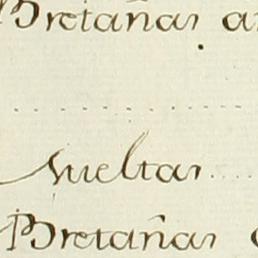 Bretañas
Sueltas
Bretañas